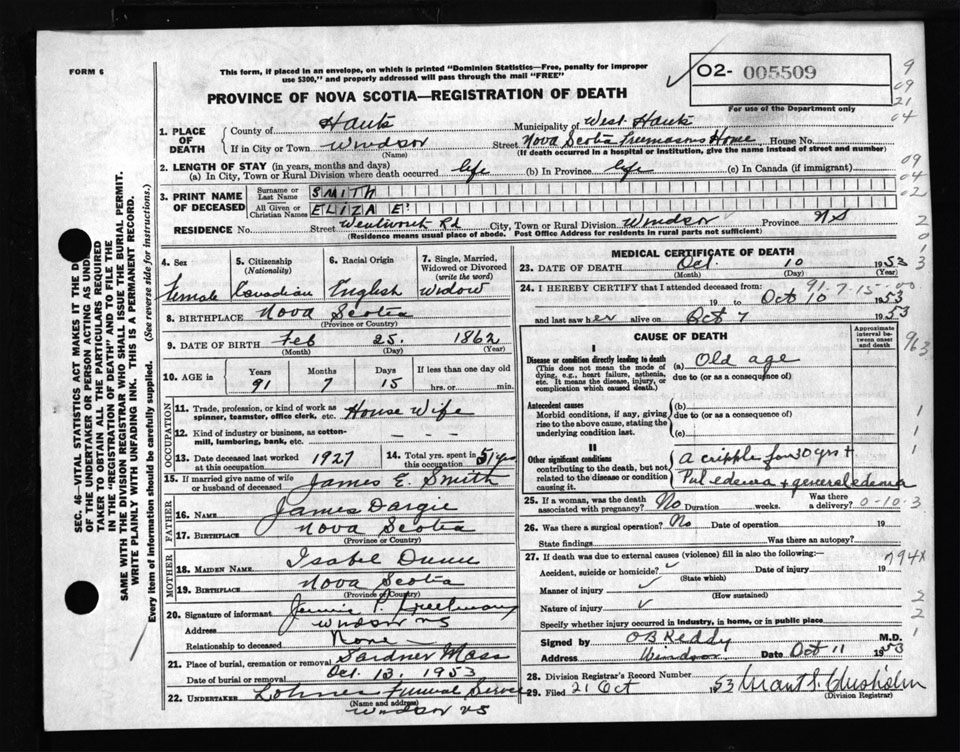 FORM 6
This form, if placed in an envelope, on which is printed "Dominion Statistics—Free, penalty for improper
use $300," and properly addressed will pass through the mail "FREE"
PROVINCE OF NOVA SCOTIA—REGISTRATION OF DEATH
02- 005509
For use of the Department only
9
09
21
04
1. PLACE OF DEATH County of Hants Municipality of West Hants
If in City or Town Windsor (Name) Street Nova Scotia Freemasons Home House No.
(If death occurred in a hospital or institution, give the name instead of street and number)
2. LENGTH OF STAY (in years, months and days)
(a) In City, Town or Rural Division where death occurred life (b) In Province life (c) In Canada (if immigrant)
09
04
02
3. PRINT NAME OF DECEASED Surname or Last Name SMITH
All Given or Christian Names ELIZA E.
RESIDENCE No. Street Wentworth Rd City, Town or Rural Division Windsor Province NS
(Residence means usual place of abode. Post Office Address for residents in rural parts not sufficient)
2
0
1
3
SEC. 46—VITAL STATISTICS ACT MAKES IT THE D
OF THE UNDERTAKER OR PERSON ACTING AS UND
TAKER TO OBTAIN ALL THE PARTICULARS REQUIRED
IN THE "REGISTRATION OF DEATH" AND TO FILE THE
SAME WITH THE DIVISION REGISTRAR WHO SHALL ISSUE THE BURIAL PERMIT.
WRITE PLAINLY WITH UNFADING INK. THIS IS A PERMANENT RECORD.
Every item of information should be carefully supplied. (See reverse side for instructions.)
4. Sex
Female
5. Citizenship (Nationality)
Canadian
6. Racial Origin
English
7. Single, Married, Widowed or Divorced (write the word)
Widow
8. BIRTHPLACE Nova Scotia
(Province or Country)
9. DATE OF BIRTH Feb 25. 1862
(Month) (Day) (Year)
10. AGE is Years 91 Months 7 Days 15 If less than one day old
hrs. or min.
OCCUPATION
11. Trade, profession, or kind of work as spinner, teamster, office clerk, etc. House Wife
12. Kind of industry or business, as cotton-mill, lumbering, bank, etc. — — —
13. Date deceased last worked at this occupation 1927
14. Total yrs. spent in this occupation 51 yrs
15. If married give name of wife or husband of deceased James E. Smith
FATHER
16. Name James Dargie
17. Birthplace Nova Scotia
(Province or Country)
MOTHER
18. MAIDEN NAME Isabel Dunn
19. BIRTHPLACE Nova Scotia
(Province or Country)
20. Signature of informant Jennie P.
Address Windsor NS
Relationship to deceased None
21. Place of burial, cremation or removal Gardner Mass
Date of burial or removal Oct. 13, 1953
22. UNDERTAKER Lohnes Funeral Service
(Name and address)
Windsor NS
MEDICAL CERTIFICATE OF DEATH
23. DATE OF DEATH Oct. 10 1953
(Month) (Day) (Year)
91-7-15-00
24. I HEREBY CERTIFY that I attended deceased from:
19 to Oct 10 1953
and last saw her alive on Oct 7 1953
CAUSE OF DEATH
Approximate interval between onset and death
963
I
Disease or condition directly leading to death
(This does not mean the mode of dying, e.g., heart failure, asthenia, etc. It means the disease, injury, or complication which caused death.)
(a) Old age
due to (or as a consequence of)
Antecedent causes
Morbid conditions, if any, giving rise to the above cause, stating the underlying condition last.
(b)
due to (or as a consequence of)
(c)
1
1
1
1
II
Other significant conditions
contributing to the death, but not related to the disease or condition causing it.
A cripple for 30 yrs +
Pul edema + general edema
25. If a woman, was the death associated with pregnancy? No Duration weeks. Was there a delivery?
0-10-3
26. Was there a surgical operation? No Date of operation 19
State findings Was there an autopsy?
27. If death was due to external causes (violence) fill in also the following:—
Accident, suicide or homicide? ✓ Date of injury 19
(State which)
794X
Manner of injury ✓
(How sustained)
Nature of injury ✓
Specify whether injury occurred in industry, in home, or in public place
2
2
1
Signed by OB Keddy M.D.
Address Windsor Date Oct 11 1953
28. Division Registrar's Record Number
29. Filed 21 Oct 1953 Grant S. Chisholm
(Division Registrar)